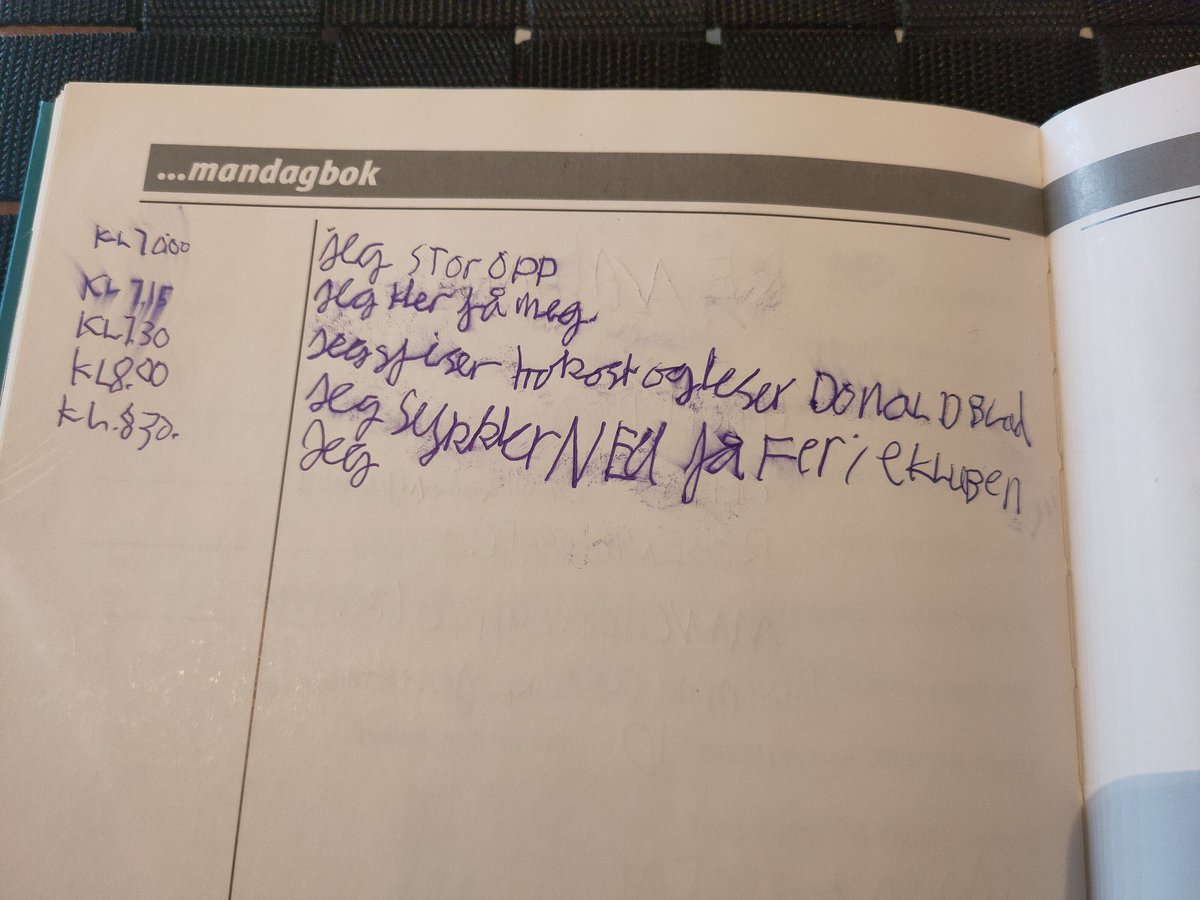 ...mandagbok
KL 7.00 jeg stor opp
KL 7.15 jeg kler på meg.
KL 7.30 jeg spiser frokost og leser DonaLD BLad
KL 8.00 jeg sykkler NED på FerieKLUBen
KL. 830. Jeg